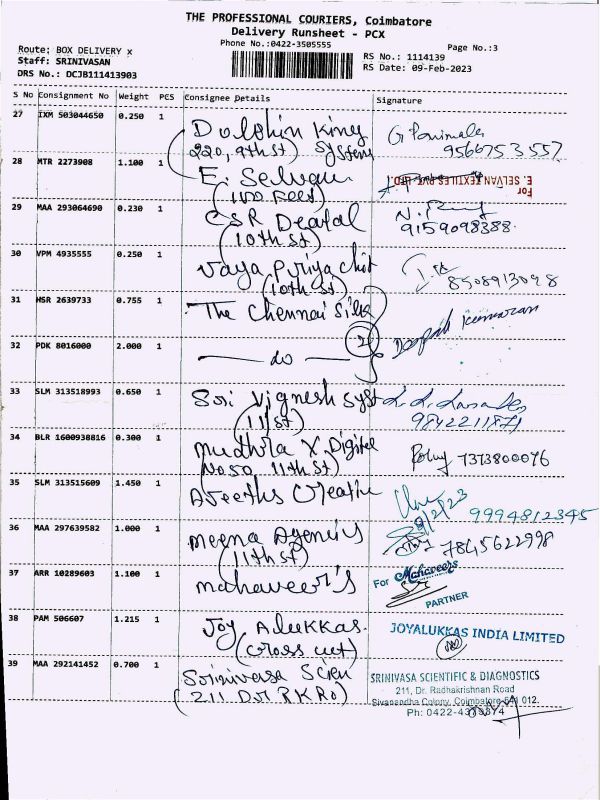 THE PROFESSIONAL COURIERS, Coimbatore
Delivery Runsheet - PCX
Phone No.:0422-3505555
Page No.:3
Route: BOX DELIVERY x
Staff: SRINIVASAN
DRS No.: DCJB111413903
RS No.: 1114139
RS Date: 09-Feb-2023
S No Consignment No Weight PCS Consignee Details Signature
27 IXM 503044650 0.250 1 Dolphin King
(220, 9th st) Systems
9566753557
28 MTR 2273908 1.100 1 E. Selvan
(100 Feet)
For
E. SELVAN TEXTILES PVT. LTD.
29 MAA 293064690 0.230 1 CSR Deatal
(10th st)
9159098388
30 VPM 4935555 0.250 1 Vaya Priya Chit
(10th st)
8508913098
31 HSR 2639733 0.755 1 The Chennai Silks
2
32 PDK 8016000 2.000 1 — do —
33 SLM 313518993 0.650 1 Sri Vignesh Syst
(11 st)
9842211871
34 BLR 1600938816 0.300 1 Mudhra X Digital
(No 50 11th st)
7373800076
35 SLM 313515609 1.450 1 Creative
9/2/23
9994812345
36 MAA 297639582 1.000 1 Meena Agencis
(11th st)
7845622998
37 ARR 10289603 1.100 1 Mahaveer's
For Mahaveers
PARTNER
38 PAM 506607 1.215 1 Joy Alukkas.
(cross cut)
JOYALUKKAS INDIA LIMITED
39 MAA 292141452 0.700 1 Srinivasa Scien
(211 Dr RK Ro)
SRINIVASA SCIENTIFIC & DIAGNOSTICS
211, Dr. Radhakrishnan Road
Sivanandha Colony, Coimbatore-641 012.
Ph: 0422-4378374